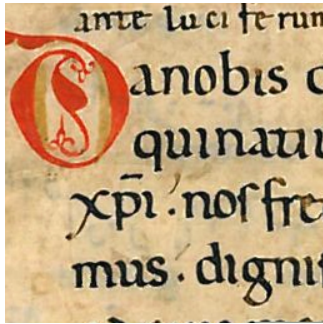 ante luciferum
Danobis
quinatiu
xp̄i. noſ fre
mus. digni